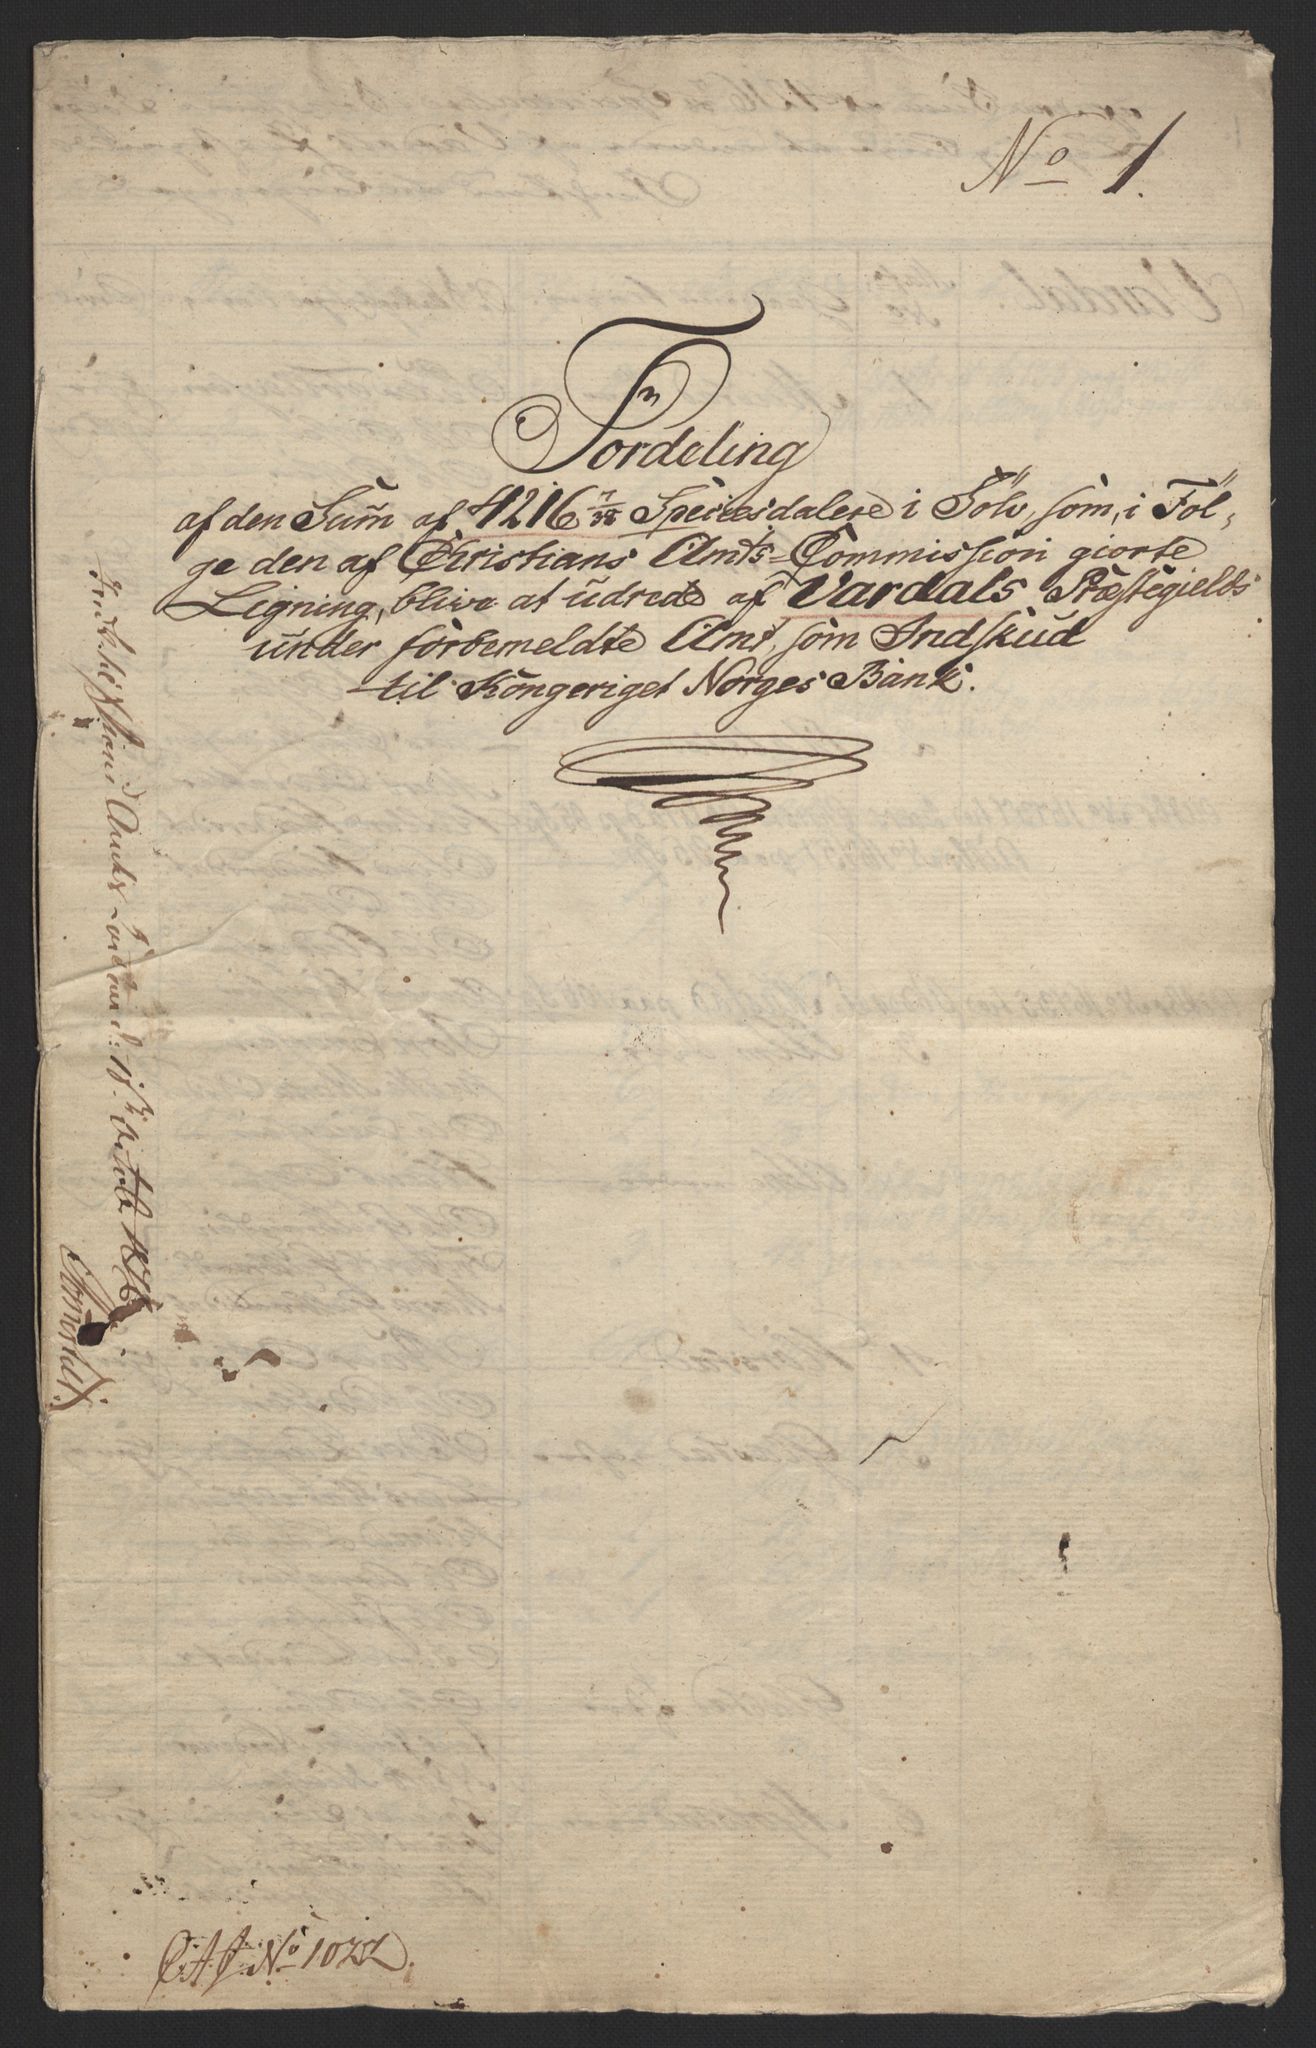 No 1.
Fordeling
af den Sum af 4216 Speciesdalere i Sölv, som, i Föl-
ge den af Christians Amts-Commission giorte
Ligning, blive at udrede af Vardals Præstegield
under forbemeldte Amt, som Indskud
til Kongeriget Norges Bank.
Christians Amts 18 Octob 1816
CAC No 1022.